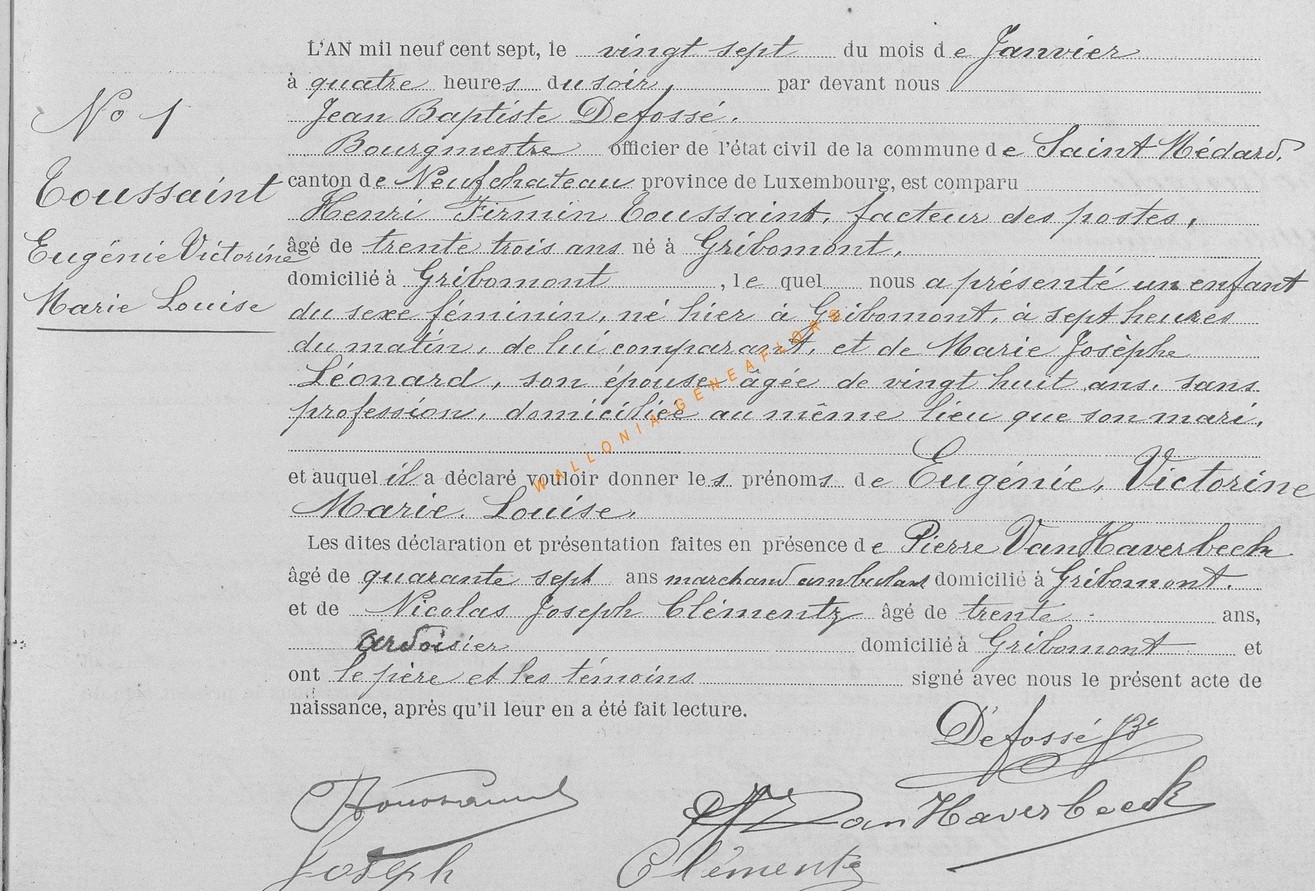 No 1
Toussaint
Eugénie Victorine
Marie Louise
L'AN mil neuf cent sept, le vingt sept du mois de Janvier
à quatre heures du soir, par devant nous
Jean Baptiste Defossé.
Bourgmestre officier de l'état civil de la commune de Saint Médard,
canton de Neufchateau province de Luxembourg, est comparu
Henri Firmin Toussaint, facteur des postes,
âgé de trente trois ans né à Gribomont,
domicilié à Gribomont, le quel nous a présenté un enfant
du sexe féminin, né hier à Gribomont, à sept heures
du matin, de lui comparant, et de Marie Josèphe
Léonard, son épouse âgée de vingt huit ans, sans
profession, domiciliée au même lieu que son mari,
et auquel il a déclaré vouloir donner les prénoms de Eugénie, Victorine
Marie. Louise.
Les dites déclaration et présentation faites en présence de Pierre Van Haverbeek
âgé de quarante sept ans marchand ambulant domicilié à Gribomont.
et de Nicolas Joseph Clémentz âgé de trente ans,
ardoisier domicilié à Gribomont et
ont le père et les témoins signé avec nous le présent acte de
naissance, après qu'il leur en a été fait lecture.
Défossé JB
Toussaint
Van Haverbeeck
Joseph Clémentz
WALLONIA GENEAFLORE